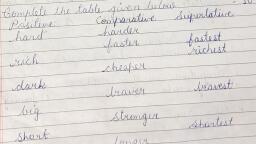 Complete the table given below
Positive Comparative Superlative
hard harder
faster fastest
rich richest
cheaper
dark braver bravest
big stronger
short shortest
longer